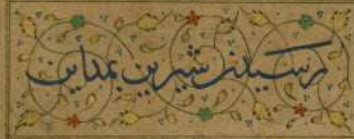 رسیدن شیرین بمداین